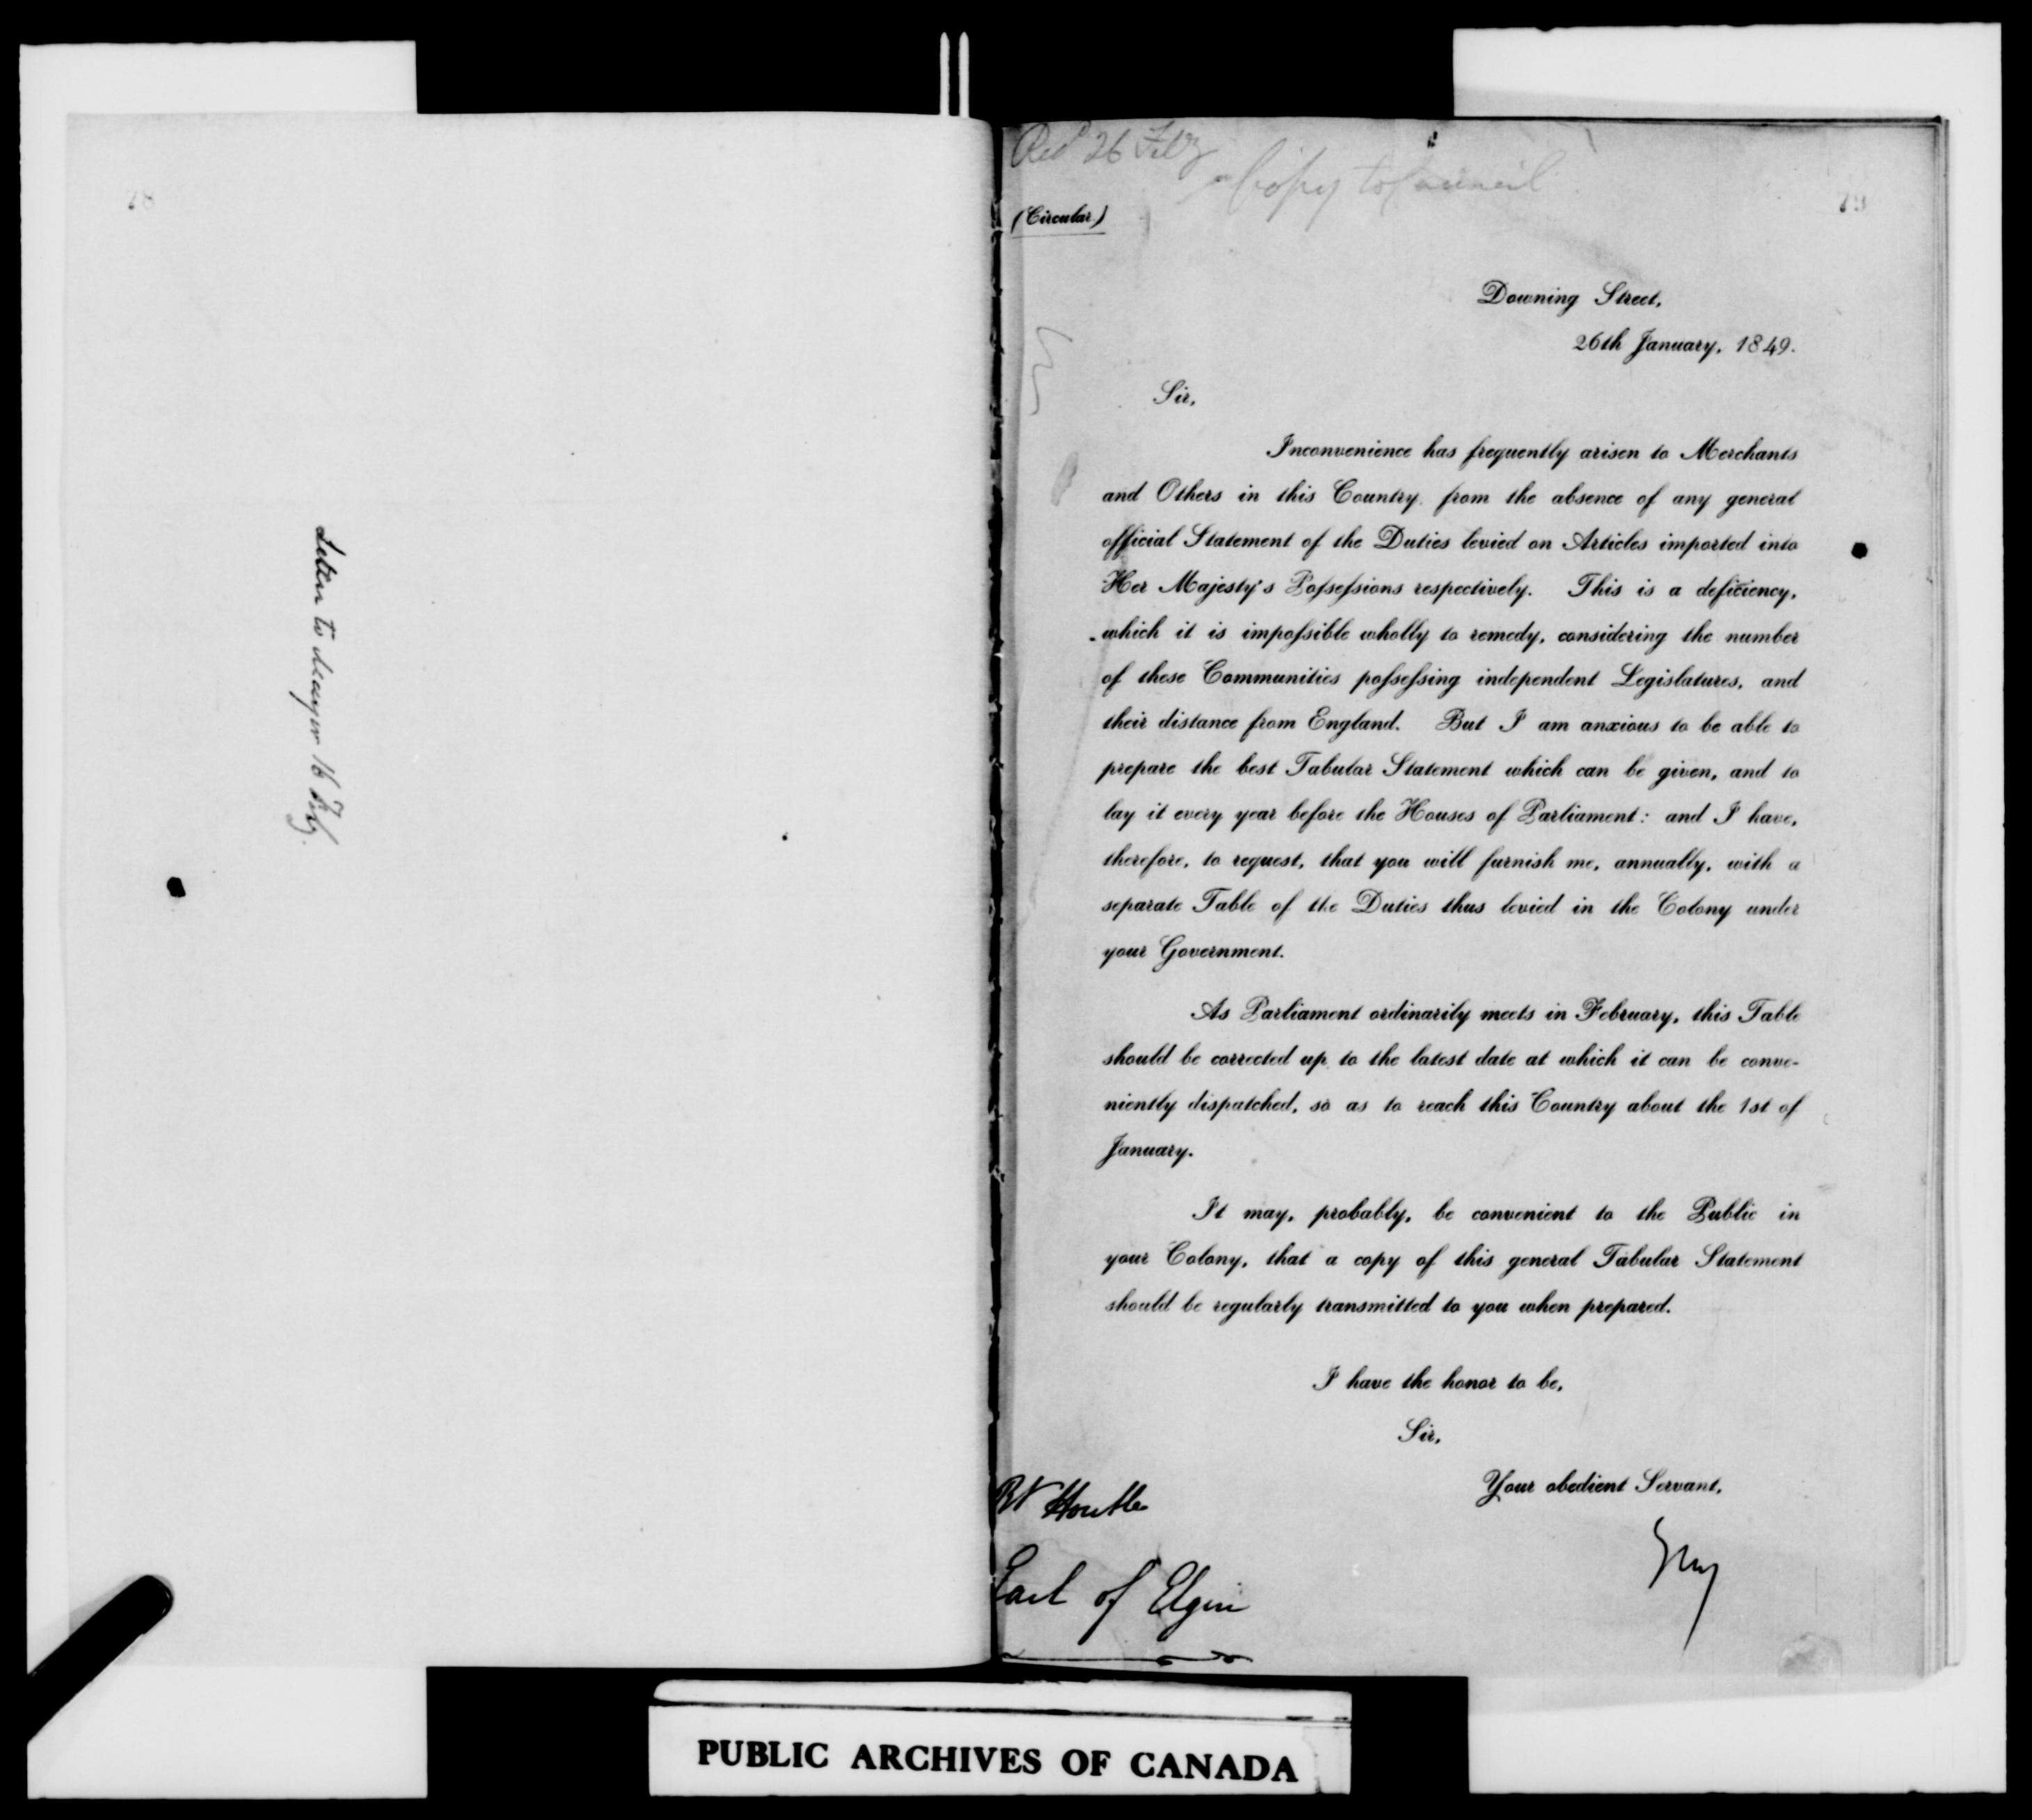 78
Letter to Mayor 16 Feby.
Recd 26 Feby
Copy to Council
79
(Circular.)
Downing Street,
26th January, 1849.
Sir,
Inconvenience has frequently arisen to Merchants
and Others in this Country from the absence of any general
official Statement of the Duties levied on Articles imported into
Her Majesty's Poſseſsions respectively. This is a deficiency,
which it is impoſsible wholly to remedy, considering the number
of these Communities poſseſsing independent Legislatures, and
their distance from England. But I am anxious to be able to
prepare the best Tabular Statement which can be given, and to
lay it every year before the Houses of Parliament: and I have,
therefore, to request, that you will furnish me, annually, with a
separate Table of the Duties thus levied in the Colony under
your Government.
As Parliament ordinarily meets in February, this Table
should be corrected up to the latest date at which it can be conve-
niently dispatched, so as to reach this Country about the 1st of
January.
It may, probably, be convenient to the Public in
your Colony, that a copy of this general Tabular Statement
should be regularly transmitted to you when prepared.
I have the honor to be,
Sir,
Your obedient Servant,
Grey
Rt Honble
Earl of Elgin
PUBLIC ARCHIVES OF CANADA